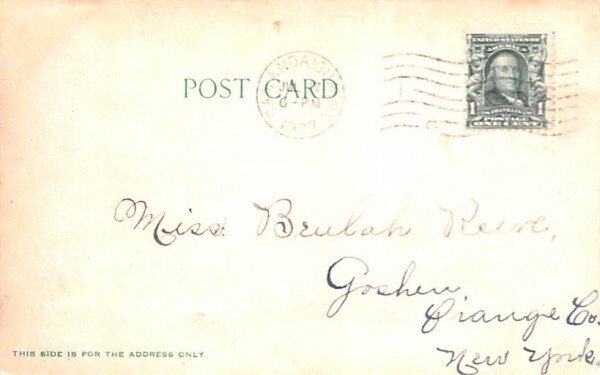 UNITED STATES OF
AMERICA
POST CARD
6-PM
1907
1 FRANKLIN 1
POSTAGE
ONE CENT
Miss Beulah Reeve,
Goshen
Orange Co.
New York.
THIS SIDE IS FOR THE ADDRESS ONLY